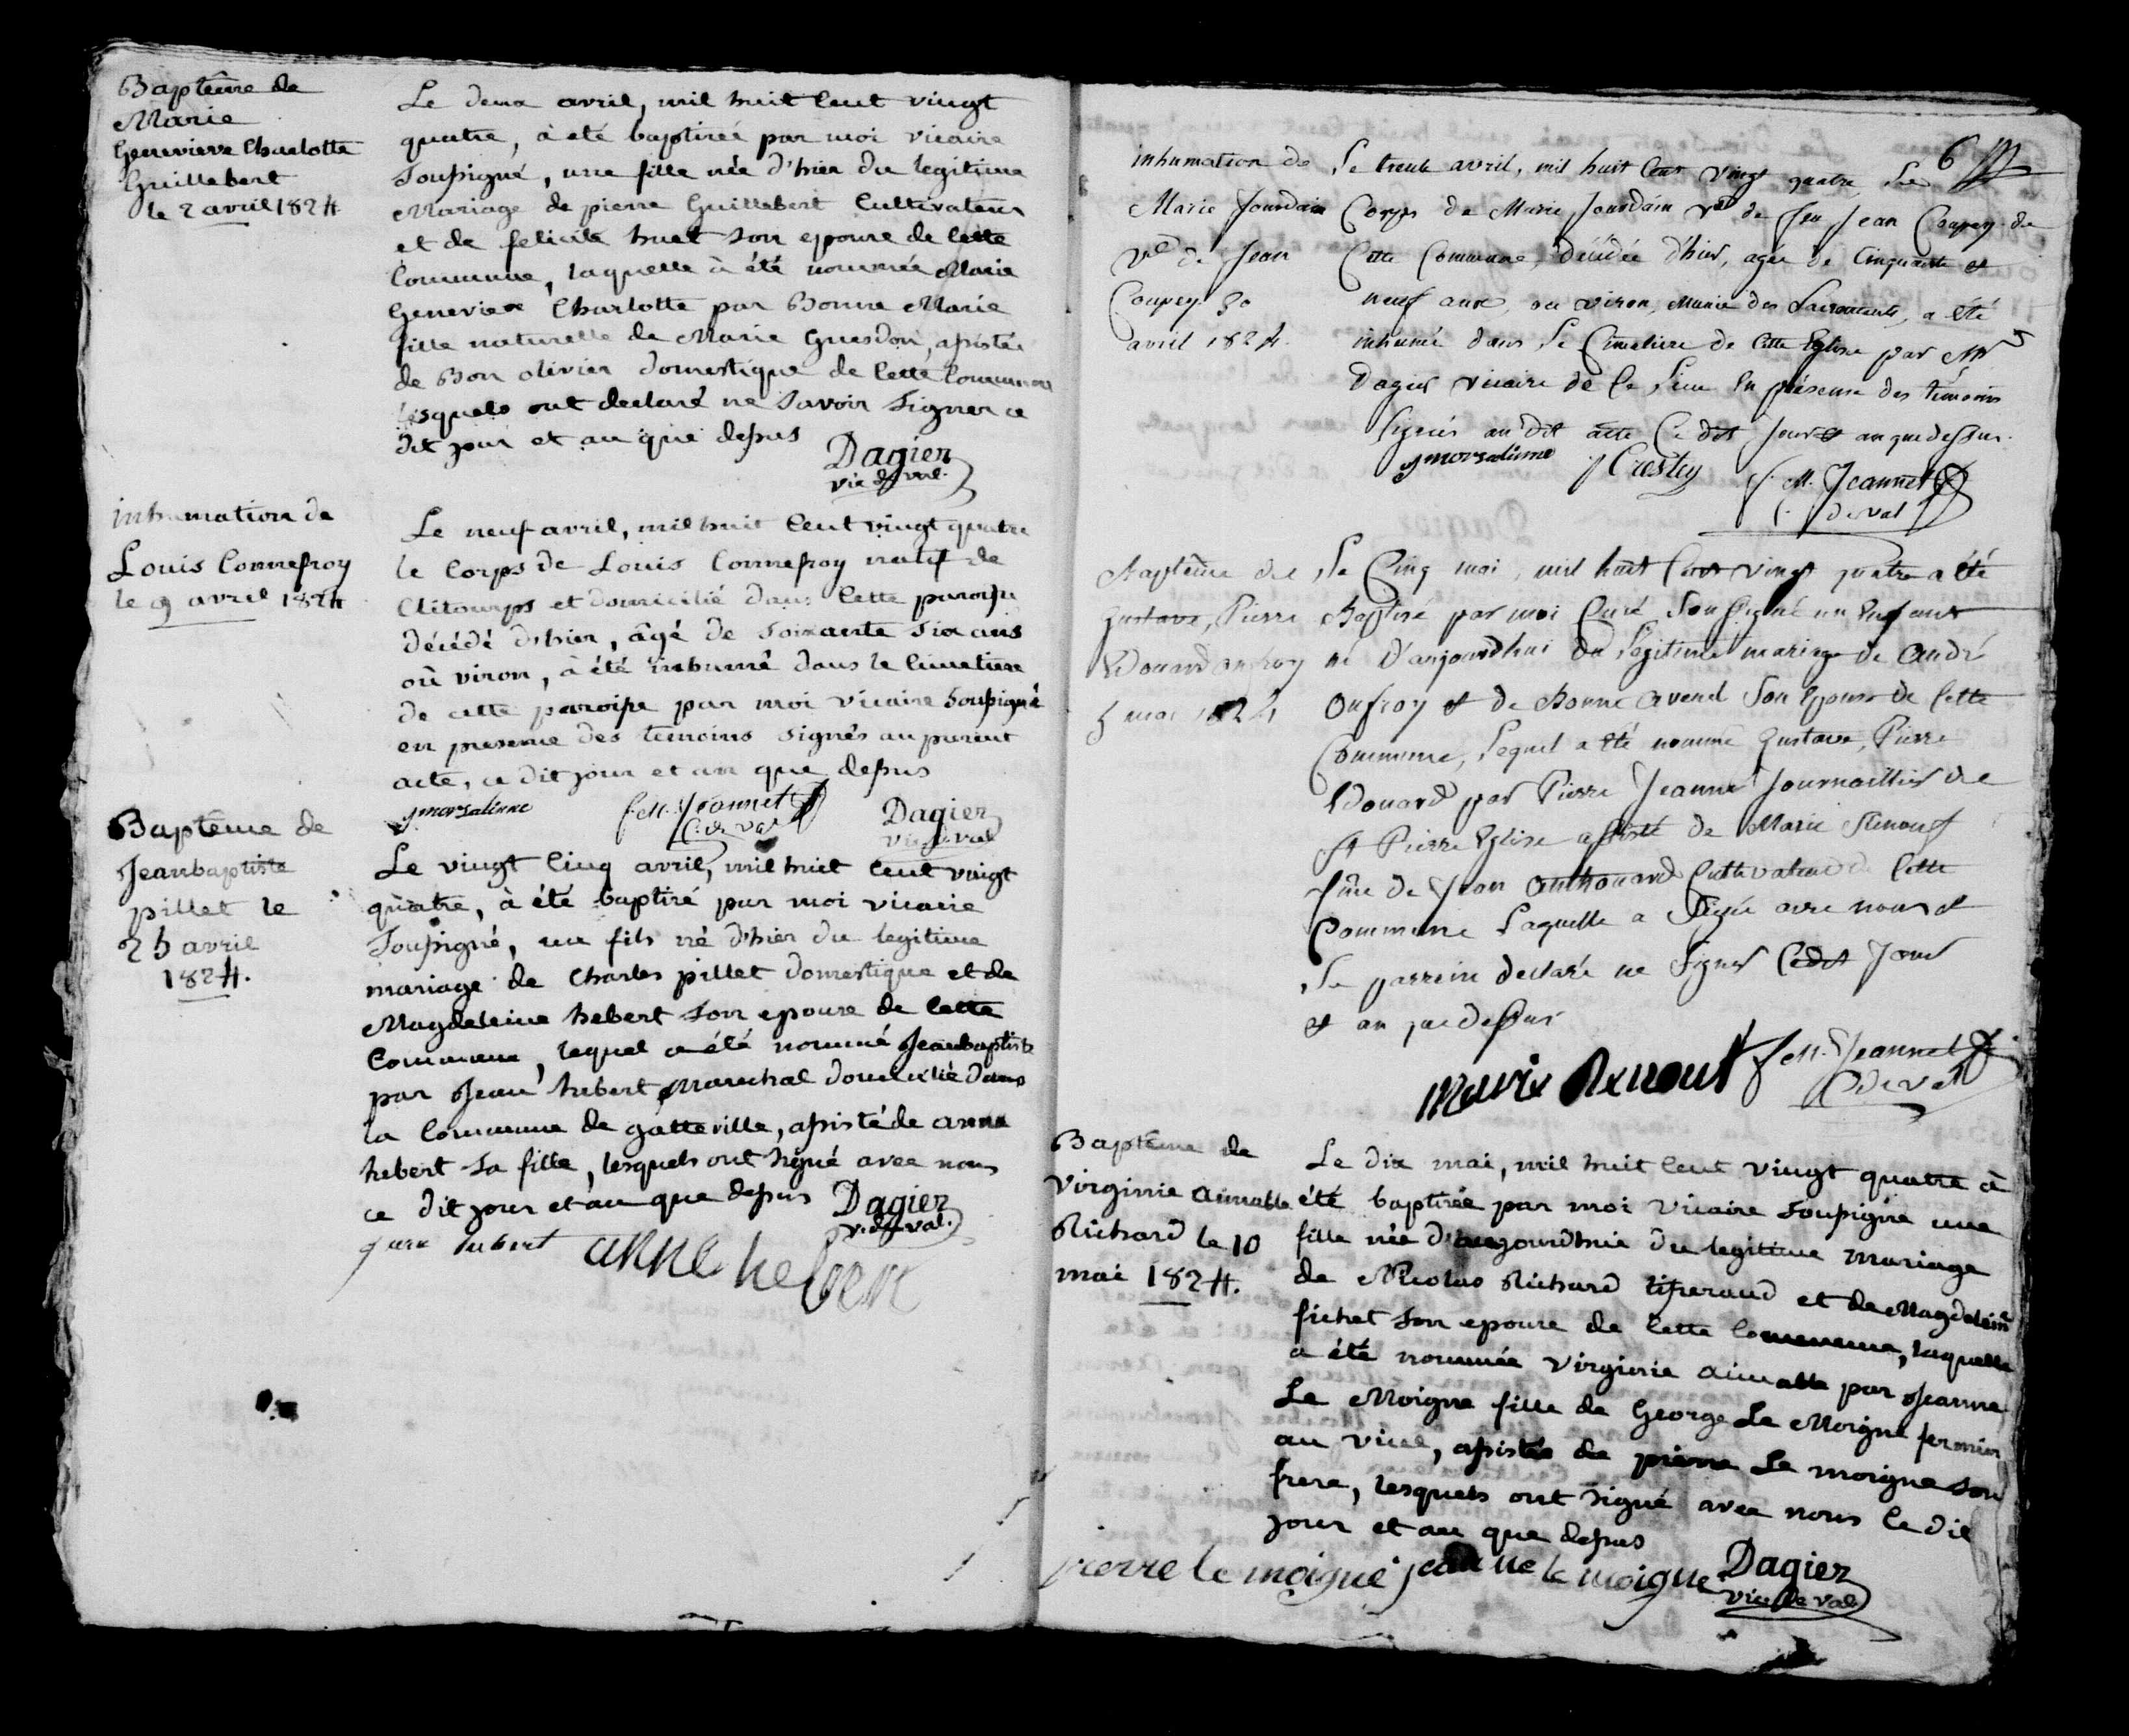 Baptême de
Marie
Genevieve Charlotte
Guillebert
le 2 avril 1824
Le deux avril, mil huit Cent vingt
quatre, à eté baptiseé par moi vicaire
Soussigné, une fille née d'hier du legitime
Mariage de pierre Guillebert Cultivateur
et de felicité huet son epouse de Cette
Commune, laquelle à été nommée Marie
Genevieve Charlotte par Bonne Marie
fille naturelle de Marie Guesdon, assistée
de Bon olivier domestique de Cette Commune
lesquels ont declaré ne Savoir Signer ce
dit jour et an que dessus
Dagier
vic du val.
inhumation de
Louis Connefroy
le 9 avril 1824
Le neuf avril, mil huit Cent vingt quatre
le Corps de Louis Connefroy natif de
Clitourps et domicilié dans Cette paroisse
décédé d'hier, âgé de Soixante Six ans
où viron, a été inhumé dans le Cimetiere
de cette paroisse par moi vicaire Soussigné
en presence des temoins signés au present
acte, ce dit jour et an que dessus
Jeannet
C. du val
Dagier
vic du val
Baptême de
Jeanbaptiste
pillet le
25 avril
1824.
Le vingt Cinq avril, mil huit Cent vingt
quatre, à été baptisé par moi vicaire
Soussigné, un fils né d'hier du legitime
mariage de Charles pillet domestique et de
Magdeleine hebert son epouse de Cette
Commune, lequel a été nommé Jeanbaptiste
par Jean hebert Marechal domicilié dans
la Commune de gatteville, assisté de anne
hebert sa fille, lesquels ont signé avec nous
ce dit jour et an que dessus
Dagier
v. du val.
hebert anne heben
6
inhumation de
Marie Jourdain
Ve de Jean
Coupey 30
avril 1824.
Le trente avril, mil huit Cent vingt quatre, Le
Corps de Marie Jourdain Ve de feu Jean Coupey de
Cette Commune, décédée d'hier, agée de Cinquante et
neuf ans, ou viron, Munie des Sacrements, a été
inhumé dans Le Cimetiere de Cette Eglise par Mr
Dagier vicaire de Ce Lieu En présence des témoins
Signés au dit acte Ce dit Jour et an que dessus.
J Crestey
Jeannet
C. du val
Baptême de
Gustave, Pierre
Edouard onfroy
5 mai 1824
Le Cinq mai, mil huit Cent vingt quatre a été
Baptisé par moi Curé Soussigné un Enfant
né D'aujourd'hui du Légitime mariage de André
Onfroy et de Bonne avenel Son Epouse de Cette
Commune, Lequel a été nommé Gustave, Pierre
Edouard par Pierre Jeanne Journaillier de
St Pierre Eglise assisté de Marie Renouf
fme de Jean anthouard Cultivateur de Cette
Commune Laquelle a Signé avec nous et
Le parrein declaré ne Signer Ce dit Jour
et an que dessus
Marie Renouf
Jeannet
C du val
Baptême de
Virginie aimable
Richard le 10
mai 1824.
Le dix mai, mil huit Cent vingt quatre à
été baptisée par moi vicaire Soussigné une
fille née d'aujourdhui du legitime mariage
de Nicolas Richard tisserand et de Magdeleine
fichet son epouse de Cette Commune, laquelle
a été nommée virginie aimable par Jeanne
Le Moigne fille de George Le Moigne fermier
au vicel, assistée de pierre Le moigne son
frere, lesquels ont signé avec nous Ce dit
jour et an que dessus
pierre le moigne jeanne le moigne
Dagier
vic du val